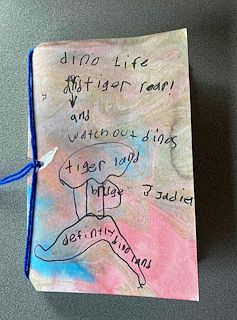 dino Life
and tiger roar!
and
watch out dinos
tiger land
bridge
Jadie
defintly dino land